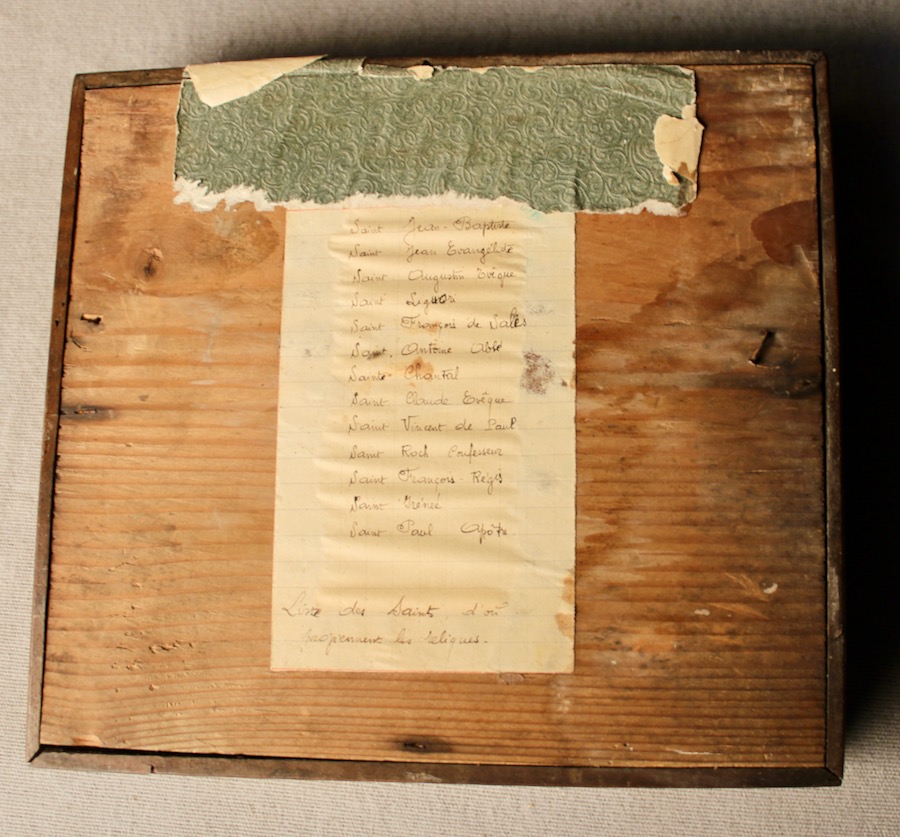 Saint Jean-Baptiste
Saint Jean Evangéliste
Saint Augustin Evêque
Saint Liguori
Saint François de Sales
Saint Antoine Abbé
Sainte Chantal
Saint Claude Evêque
Saint Vincent de Paul
Saint Roch Confesseur
Saint François-Régis
Saint Irénée
Saint Paul Apôtre
Liste des Saints d'où
proviennent les reliques.